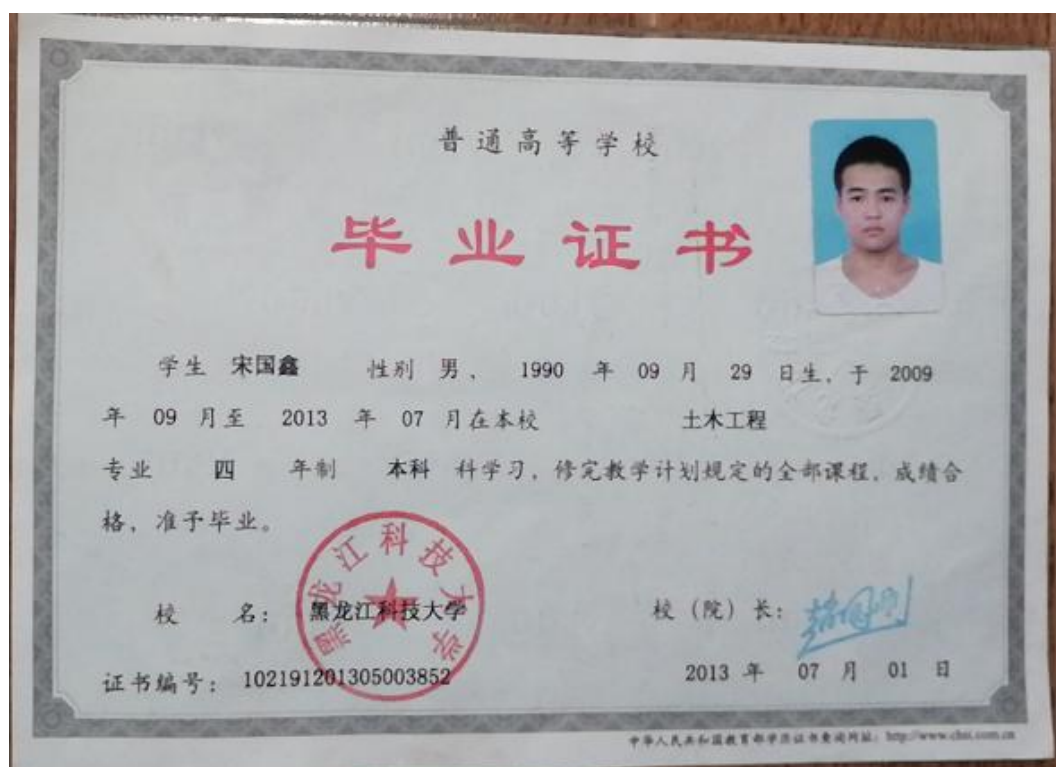 普通高等学校
毕业证书
学生 宋国鑫 性别 男、 1990 年 09 月 29 日生,于 2009
年 09 月至 2013 年 07 月在本校 土木工程
专业 四 年制 本科 科学习,修完教学计划规定的全部课程,成绩合
格,准予毕业。
黑龙江科技大学
校 名: 黑龙江科技大学 校(院)长:
证书编号: 102191201305003852 2013 年 07 月 01 日
中华人民共和国教育部学历证书查询网址: http://www.chsi.com.cn